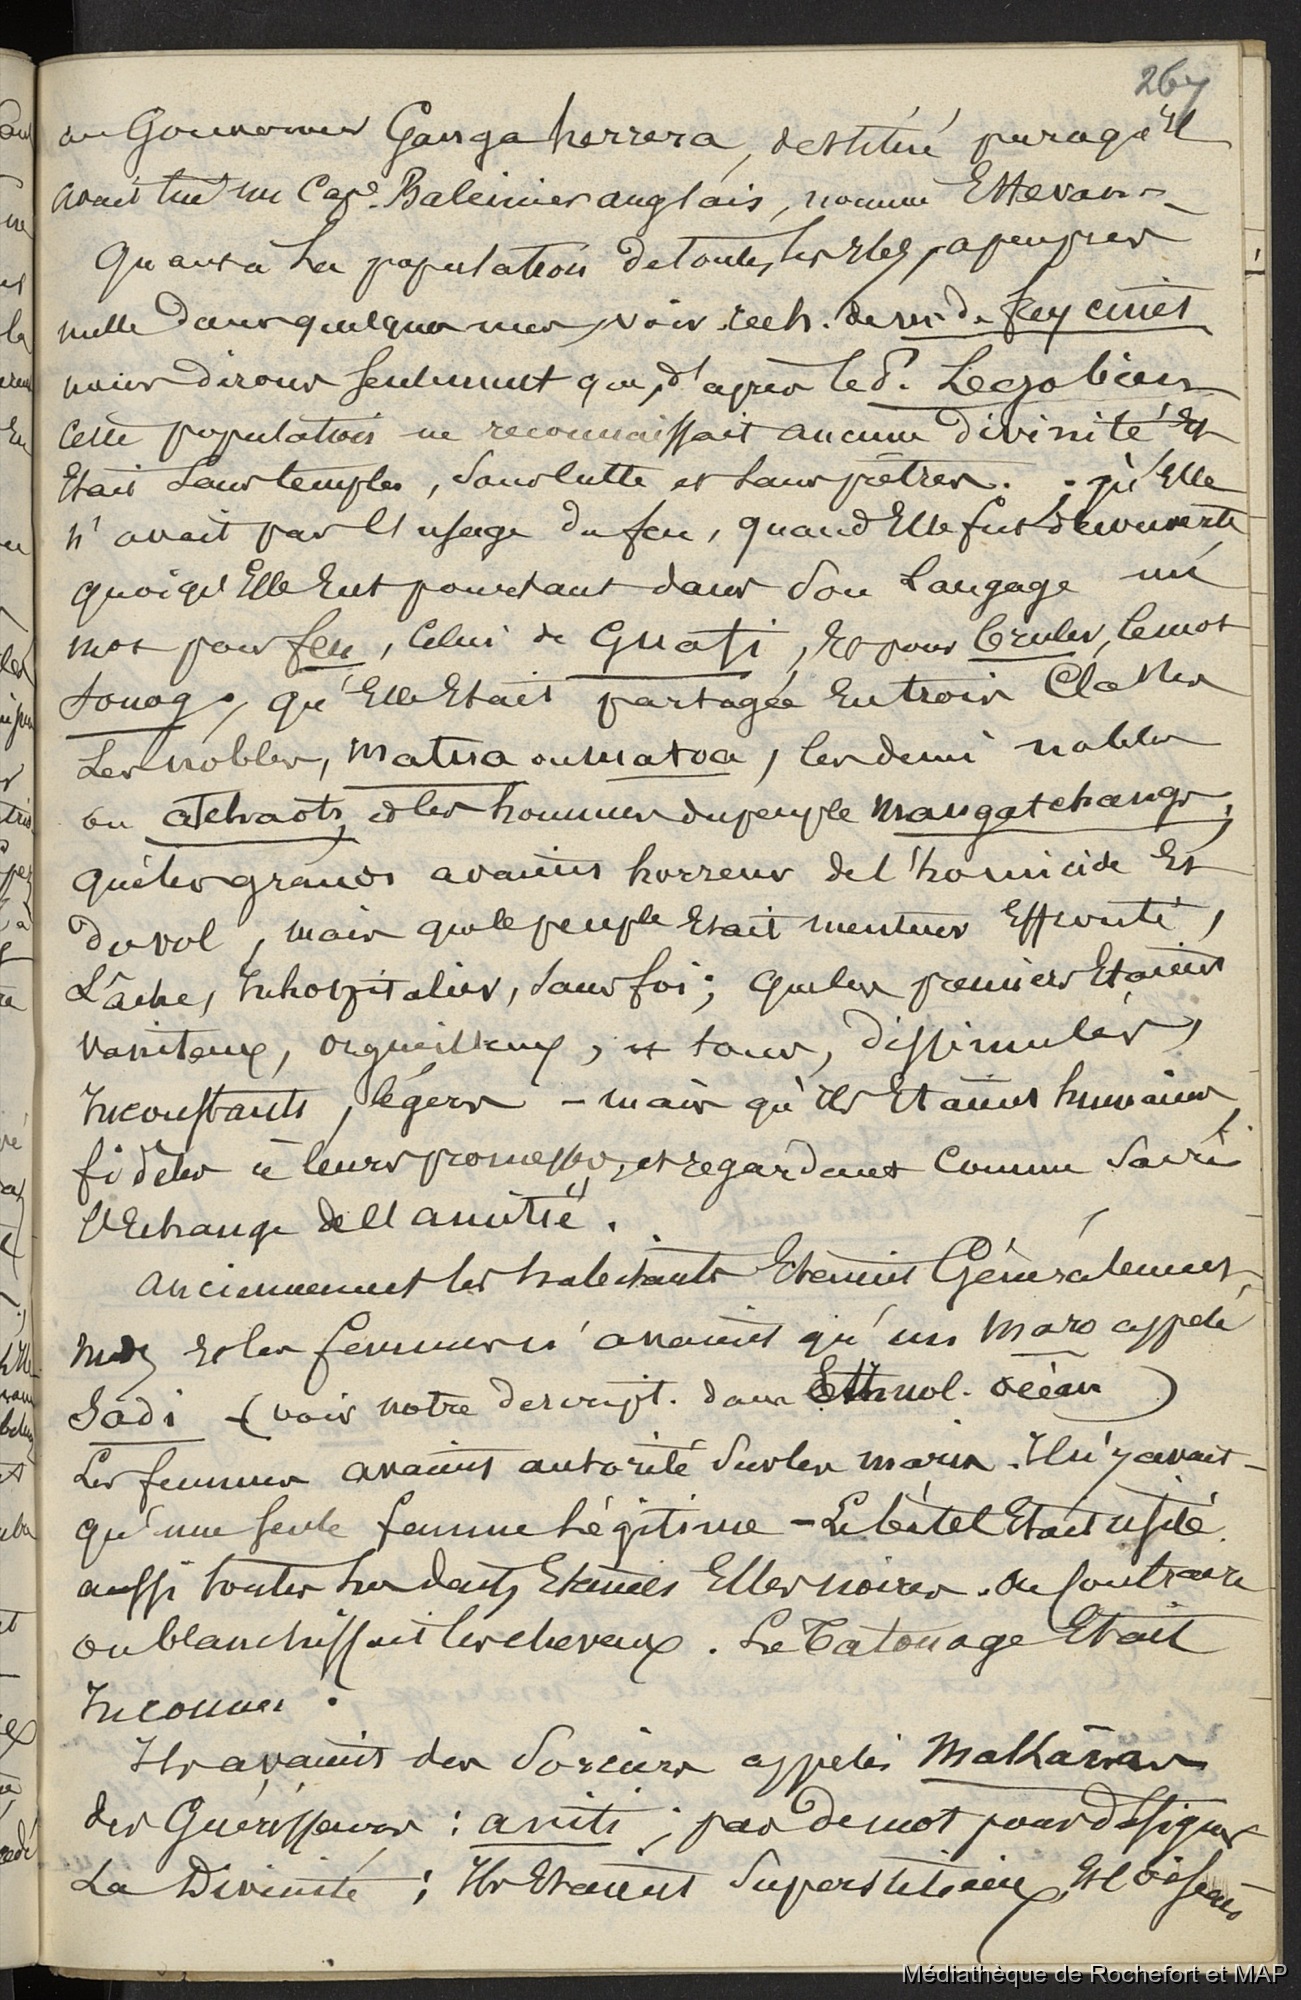 267
au Gouverneur Ganga herrera, destitué parcequ'il
avait tué un Cap.e Baleinier anglais, nommé Stevans.
Quant à la population de toutes les Iles, à peu près
nulle dans quelques unes, voir rech. de Mr. de Freycinet
nous dirons seulement que, d'après le P. Legobien
cette population ne reconnaissait aucune divinité Et
Etait sans temples, sans culte et sans prêtres. ; qu'Elle
n'avait pas l'usage du feu, quand Elle fut découverte
quoiqu'Elle Eut pourtant dans son langage un
mot pour feu, celui de Guafi, Et pour bruler, le mot
tonog ; qu'Elle Etait partagée En trois Classes
Les nobles, matua ou matoa, les demi nobles
ou atchaots, et les hommes du peuple mangatchangs ;
que les grands avaient horreur de l'homicide Et
du vol, mais que le peuple Etait menteur Effronté,
Lâche, Inhospitalier, sans foi ; que les premiers Etaient
vaniteux, orgueilleux, et tous, dissimulés,
Inconstants, légers - mais qu'ils Etaient humains,
fidèles à leurs promesses, et regardant comme sacré
l'Echange de l'amitié.
anciennement les habitants Etaient Généralement
nuds Et les femmes n'avaient qu'un maro appelé
Sadi - (voir notre descript. dans Ethnol. océan)
Les femmes avaient autorité sur les maris. Il n'y avait
qu'une seule femme légitime - Le bétel Etait usité
aussi toutes les dents Etaient Elles noires. Au contraire
on blanchissait les cheveux. Le Tatouage Etait
Inconnu.
Ils avaient des Sorciers appelés Makanas
des Guérisseurs : aniti ; pas de mot pour désigner
La Divinité ; Ils Etaient Superstitieux, Et l'oiseau
Médiathèque de Rochefort et MAP